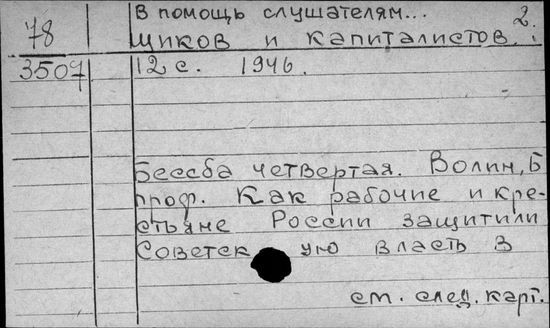 В помощь слушателям... 2.
78 щиков и капиталистов.
3507 12 с. 1946.
Беседа четвертая. Волин, Б
проф. Как рабочие и кре-
стьяне России защитили
Советск ую власть в
см. след. карт.